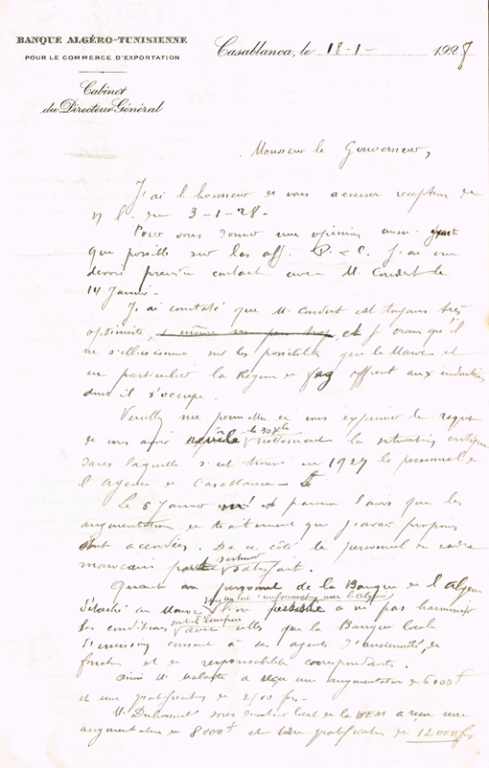 BANQUE ALGÉRO-TUNISIENNE
POUR LE COMMERCE D'EXPORTATION
Cabinet
du Directeur Général
Casablanca, le 18-1- 1928
Monsieur le Gouverneur,
J'ai l'honneur de vous accuser reception de
v/ l. du 3-1-28.
Pour vous donner une opinion aussi juste
que possible sur les aff. P. & C. j'ai cru
devoir prendre contact avec M. Condert le
14 Janvier.
J'ai constaté que M. Condert est toujours très
optimiste, et même un peu trop, et je crains qu'il
ne s'illusionne sur les possibilités que le Maroc et
en particulier la Région de Faz offrent aux industries
dont il s'occupe.
Veuillez me permettre de vous exprimer le regret
de vous avoir le 30 Xbre
dans laquelle s'est trouvé en 1927 le personnel de
l'Agence de Casablanca.
Le 6 Janvier m'est parvenu l'avis que les
augmentations de traitement que j'avais proposées
sont accordées. De ce côté le personnel du cadre
marocain satisfait.
Quant au personnel de la Banque de l'Algérie
détaché au Maroc a ne pas harmoniser
les conditions avec celles que la Banque locale
d'émission consent à ses agents d'ancienneté, de
fonction et de responsabilité correspondants.
Ainsi M. a reçu une augmentation de 6000f
et une gratification de 2/00 frs.
M. Duhamel sous directeur local de la a reçu une
augmentation de 8000f et une gratification de 12000frs